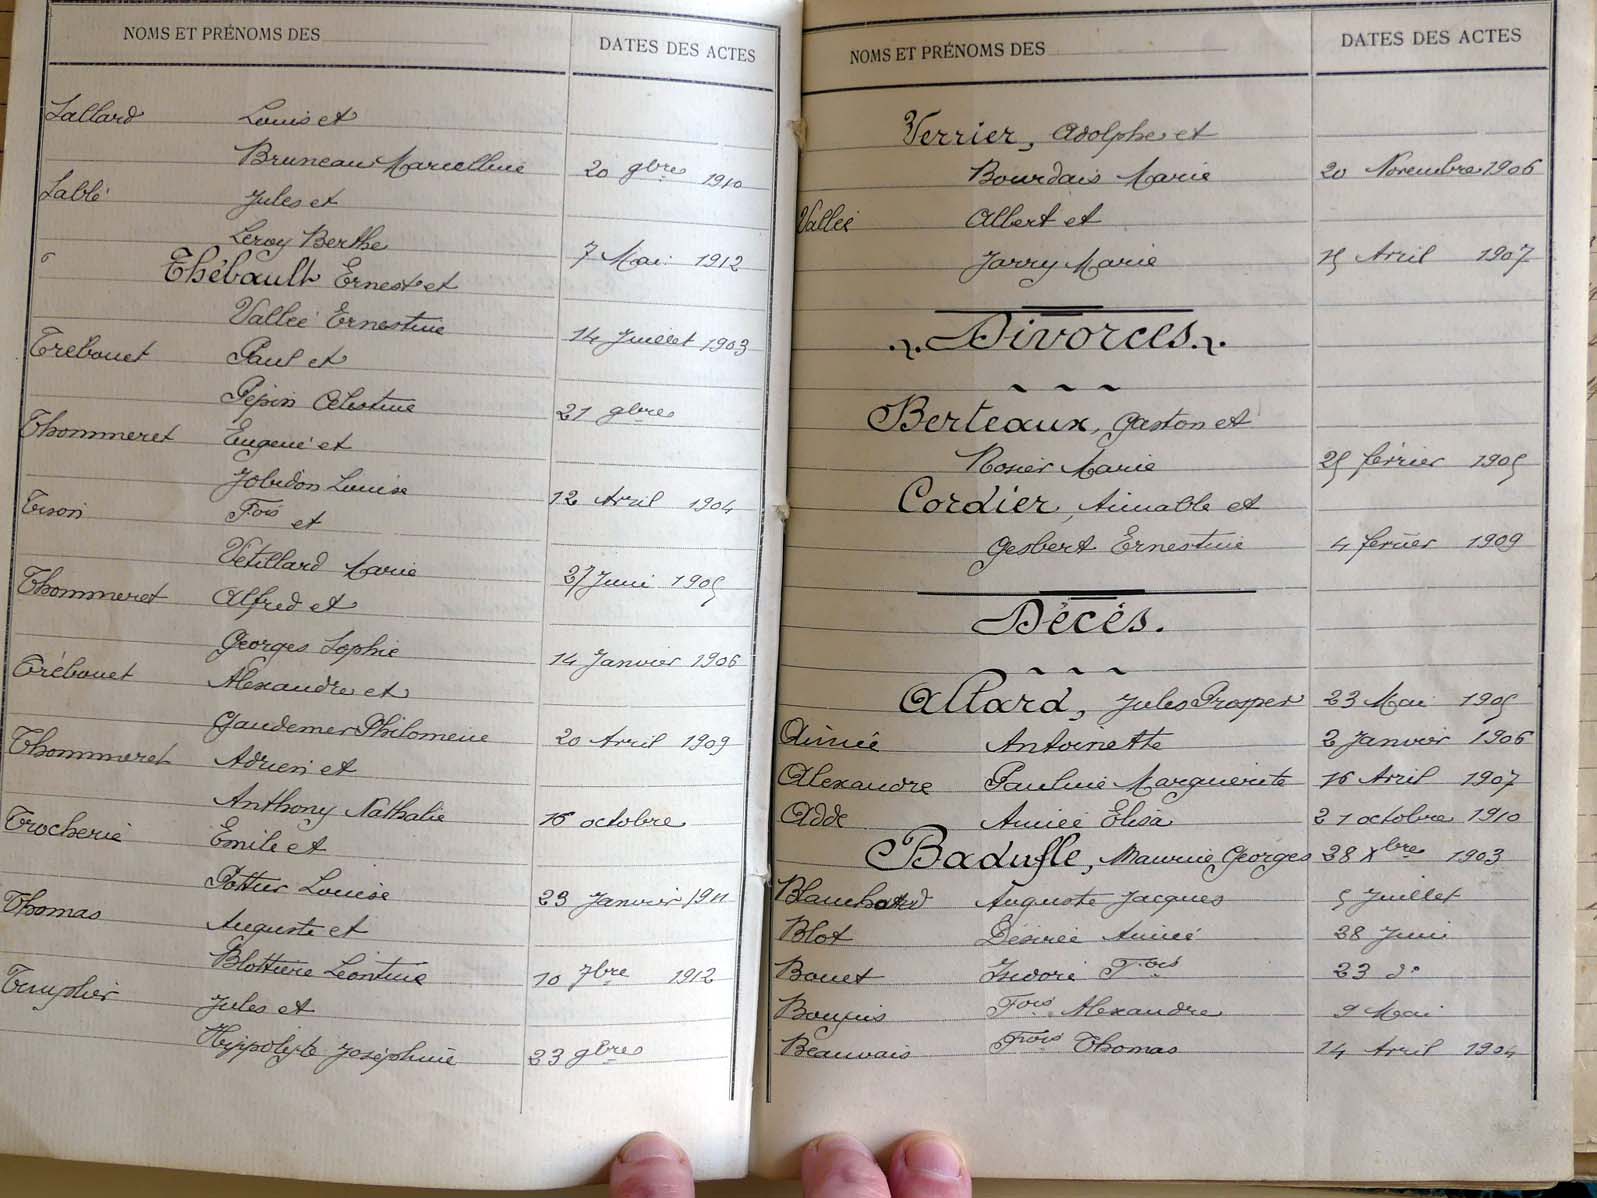 NOMS ET PRÉNOMS DES
DATES DES ACTES
Sallard Louis et
Bruneau Marcelline 20 9bres 1910
Sablé Jules et
Leroy Berthe 7 Mai 1912
Thébault Ernest et
Vallée Ernestine 14 Juillet 1903
Trebouet Paul et
Pépin Célestine 21 9bres
Thommeret Eugène et
Jobidon Louise 12 Avril 1904
Tison Fois et
Vétillard Marie 27 Juin 1905
Thommeret Alfred et
Georges Sophie 14 Janvier 1906
Trébouet Alexandre et
Gaudemer Philomene 20 Avril 1909
Thommeret Adrien et
Anthony Nathalie 16 octobre
Trocherie Emile et
Pottier Louise 23 Janvier 1911
Thomas Auguste et
Blottiere Léontine 10 7bre 1912
Jules et
Hippolyte Joséphine 23 9bres
NOMS ET PRÉNOMS DES
DATES DES ACTES
Verrier, Adolphe et
Bourdais Marie 20 Novembre 1906
Vallée Albert et
Jarry Marie 15 Avril 1907
Divorces.
Berteaux, Gaston et
Rosier Marie 25 février 1905
Cordier, Aimable et
Gesbert Ernestine 4 février 1909
Décès.
Allard, Jules Prosper 23 Mai 1905
Aimée Antoinette 2 Janvier 1906
Alexandre Pauline Marguerite 16 Avril 1907
Adde Aimée Elisa 21 octobre 1910
Badufle, Maurice Georges 28 Xbre 1903
Blanchard Auguste Jacques 5 Juillet
Blot Désirée Aimée 28 Juin
Bouet Isidore Fois 23 do
Fois Alexandre 9 Mai
Beauvais Fois Thomas 14 Avril 1904